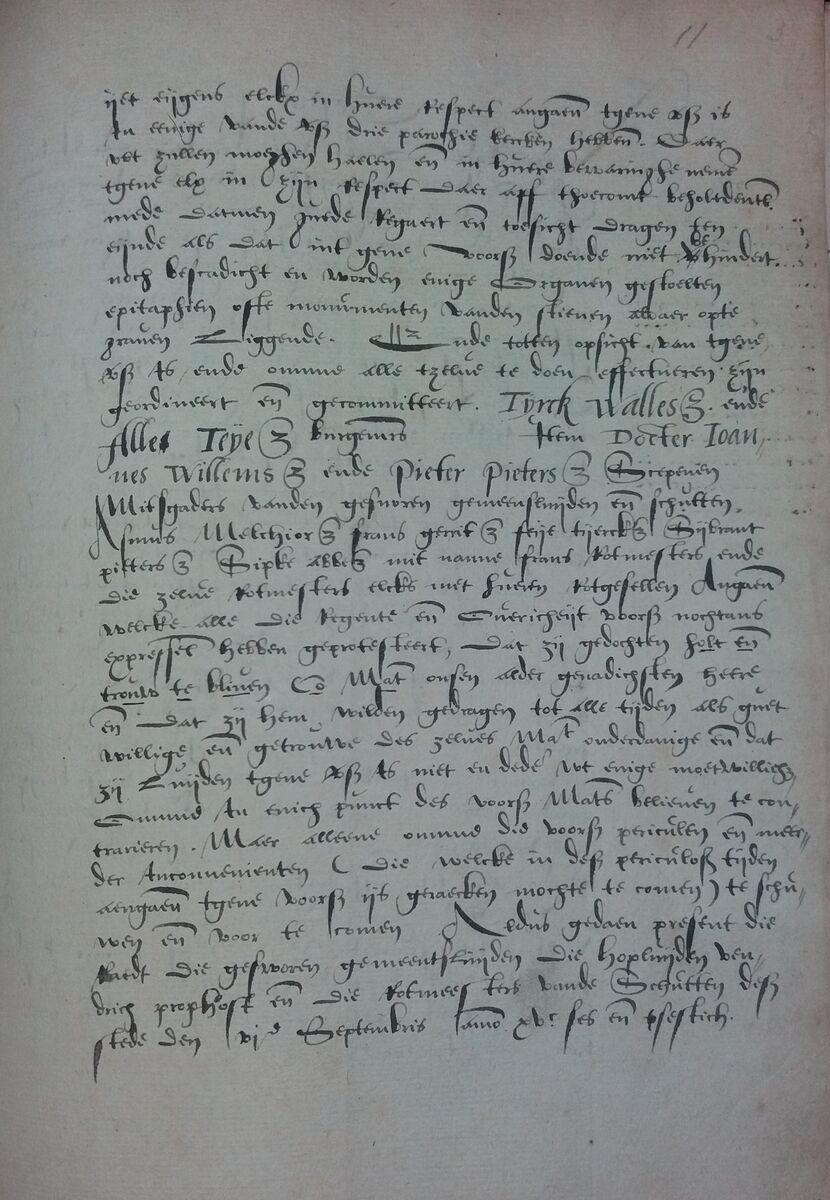 11
ijet eijgens elckx in huere respect angaen tgene vs is
in eenige vande vs drie parochie kercken hebben. Daer
vvt zullen moeghen haelen en in huere bewaringhe nemen
tgene elx in zijn respect daer aff thoecomt beholtdentl.
mede datmen mede regaert en toesicht dragen ten
eijnde als dat int gene voors doende niet vehindert
noch bescadicht en worden enige Organen gestoelten
epitaphien ofte monumenten vanden stienen alwaer opte
graven Liggende. Ende totten opsicht van tgene
vs is, ende omme alle tzelve te doen effectueren zijn
geordineert en gecommitteert. Tyrck Walles ende
Alles Teye burgemrs Item Docter Joan,
nes Willems ende Pieter Pieters Scepenen
Mitsgaders vanden gesworen gemeensluijden en schutten.
Asmus Melchiors frans gerrits feije tijercks Sijbrant
pieters Sipke abbes mit nanne frans Rotmesters ende
die zelve Rotmesters elcks met hueren Rotgesellen Angaen
welcke alle die Regente en Overicheijt voors nochtans
expresseel hebben geprotesteert, dat zij gedochten holt en
trouw te bliven Co Mat onsen alder genadichsten heere
en dat zij hem wilden gedragen tot alle tijden als guet
willige en getrouwe des zelves Mat onderdanige en dat
zij Luijden tgene vs is niet en dede wt enige moetwillich,
omme in enich punct des voors Mats believen te con,
trarieren. Maer alleene omme die voors periculen en meer,
der Inconvenienten (die welcke in des periculose tijden
aengaen tgene voors ijs geraecken mochte te comen) te schu,
wen en voor te comen Aldus gedaen present die
Raedt die gesworen gemeentsluijden die hopluijden ven,
drich prophost en die Rotmeesters vande Schutten deser
stede den vjd Septembris anno xvc ses en tsestich.